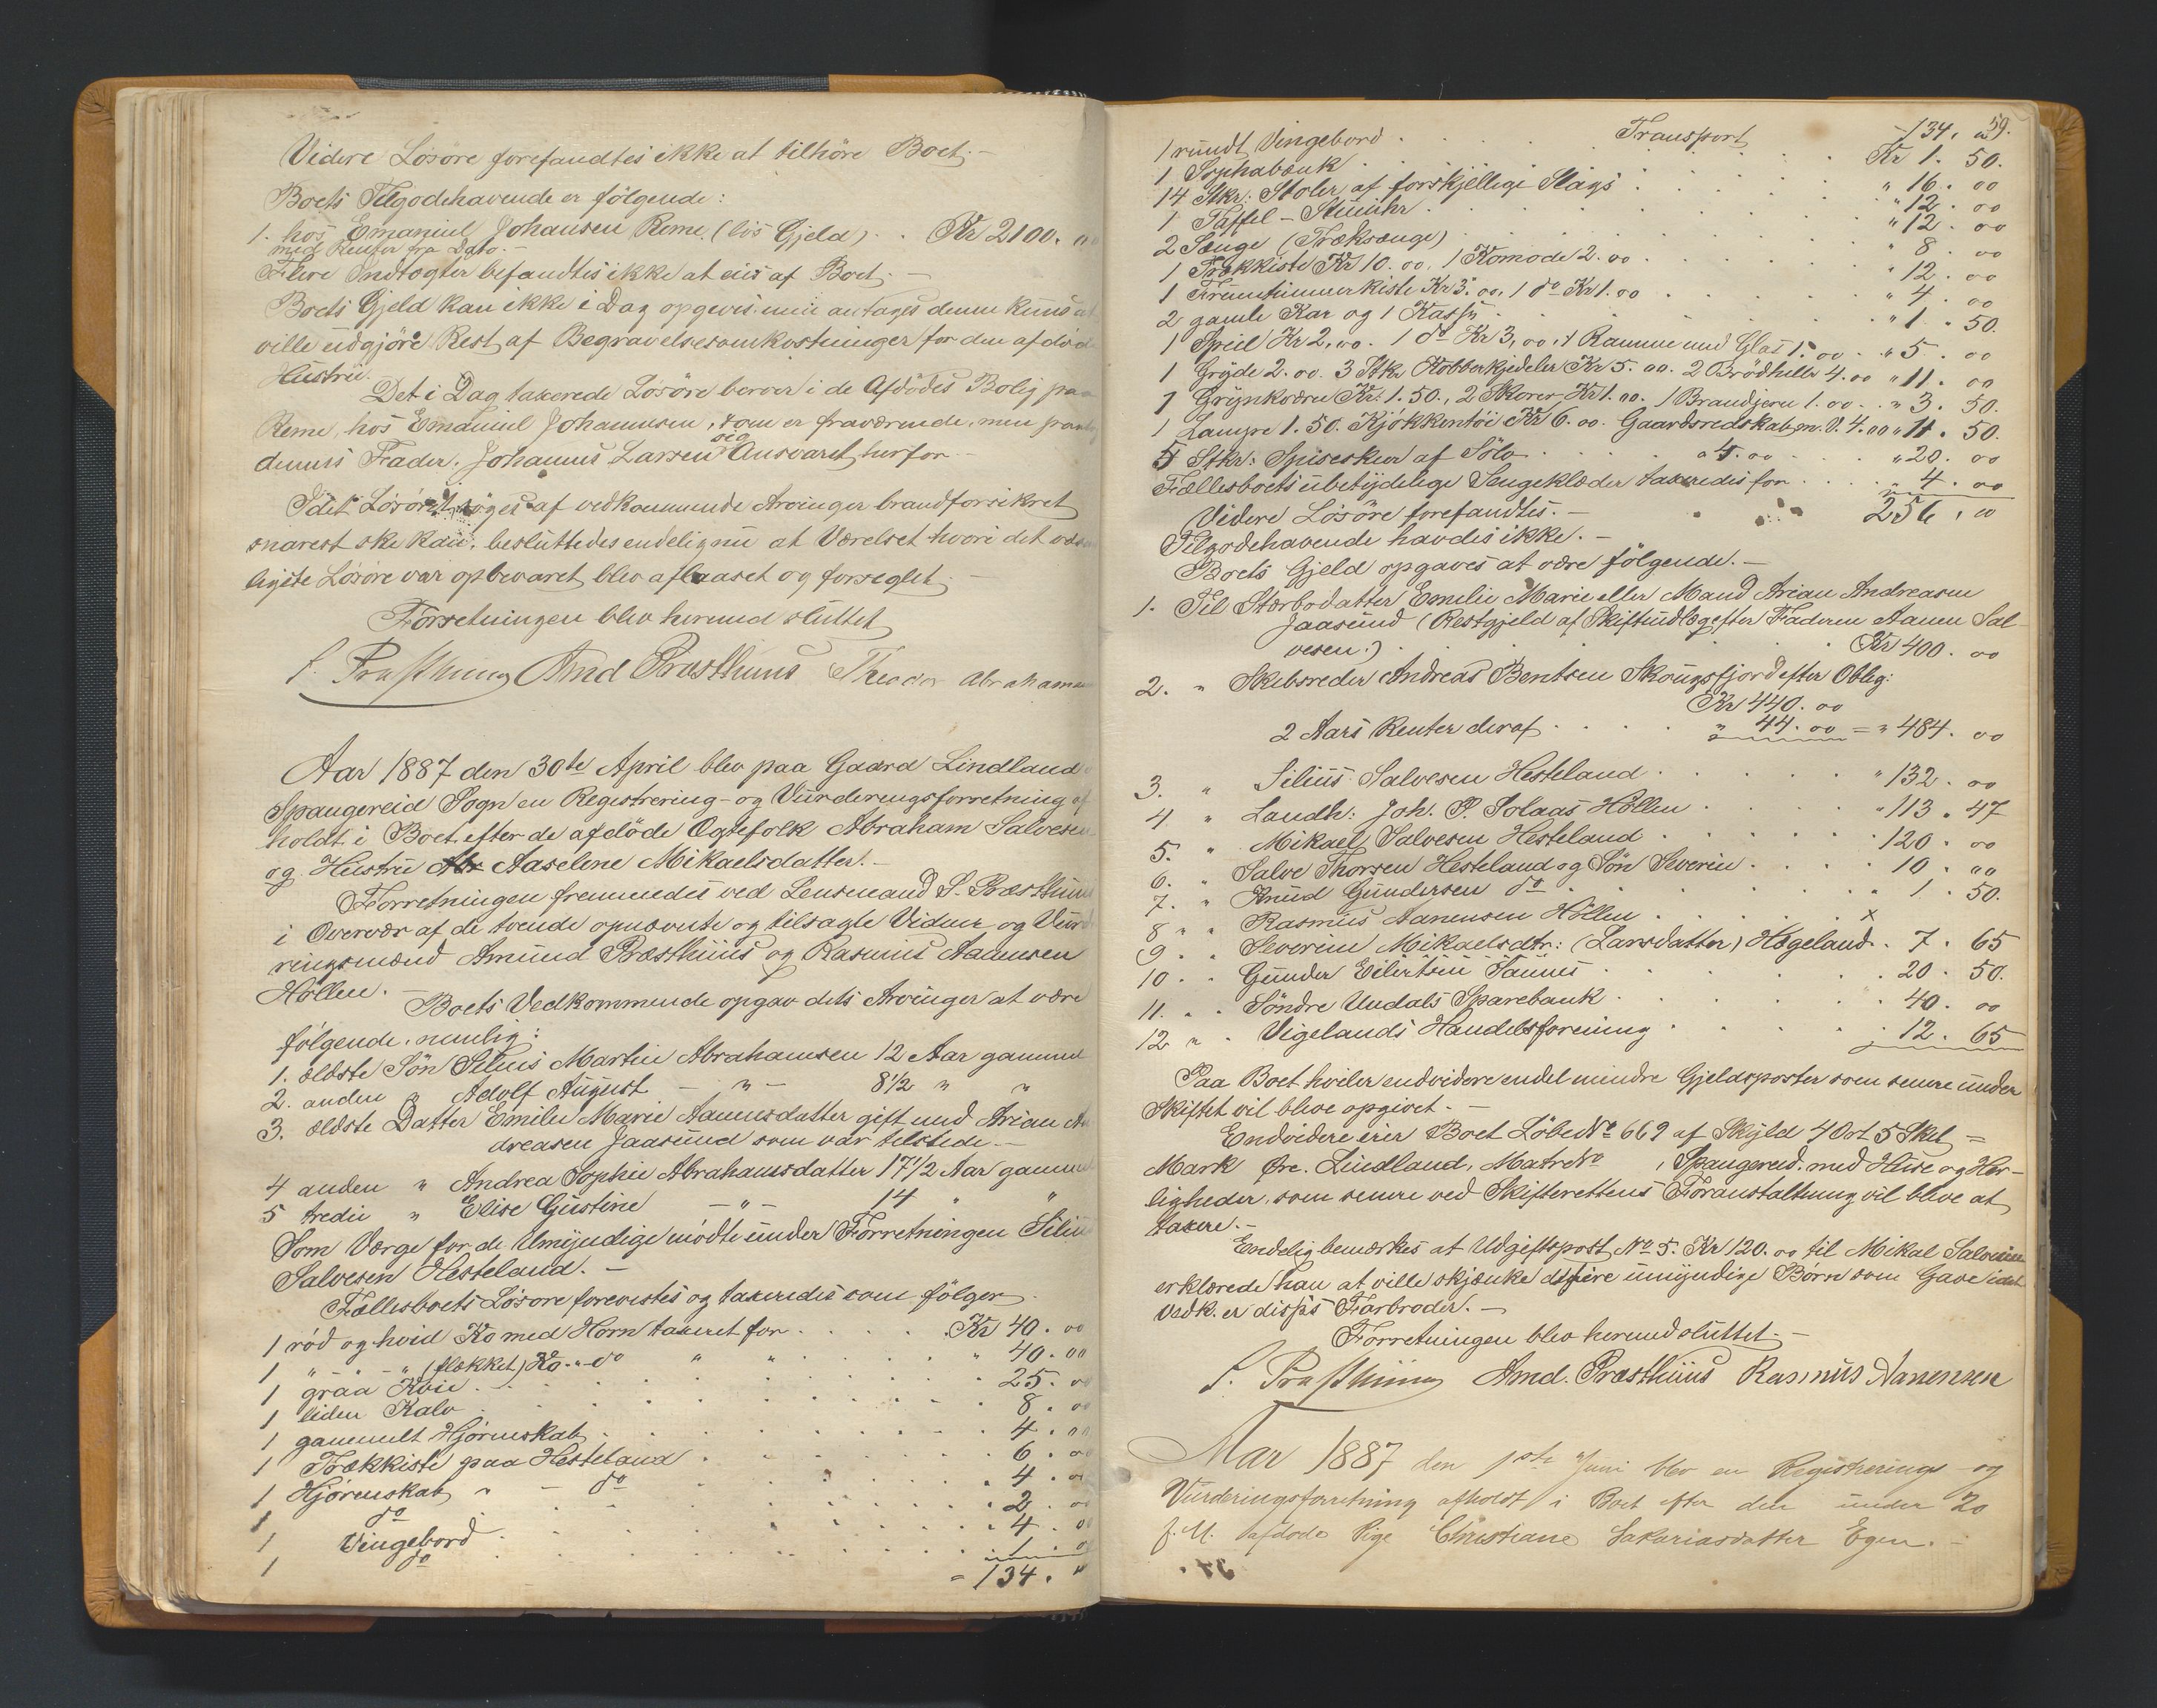 Videre Løsøre forefandtes ikke at tilhöre Boet. -
Boets Tilgodehavende er fölgende:
1. hos Emanuel Johansen Reme (lös Gjeld) . . Kr 2100. 00
med Renter fra Dato. -
Flere Indtægter befandtes ikke at eies af Boet. -
Boets Gjeld kan ikke i Dag opgives. men antages denne kuns at
ville udgjöre Rest af Begravelsesomkostninger for den afdöde
Hustru.
Det i Dag taxerede Løsöre beroer i de Afdödes Bolig paa
Reme, hos Emanuel Johannesen, som er fraværende, men paatog
dennes Fader. Johannes Larsen sig Ansvaret herfor -
Idet Løsöret søges af vedkommende Arvinger brandforsikret
snarest ske kan, besluttedes endelig nu at Værelset hvori det væsent
ligste Løsöre var opbevaret blev aflaaset og forseglet. -
Forretningen blev hermed sluttet
S. Præsthuus Amd Præsthuus Theodor Abrahamsen
Aar 1887 den 30te April blev paa Gaard Lindland i
Spangereid Sogn en Registrering- og Vurderingsforretning af
holdt i Boet efter de afdöde Egtefolk Abraham Salvesen
og Hustru Aaselene Mikaelsdatter. -
Forretningen fremmedes ved Lensmand S. Præsthuus
i Overvær af de tvende opnævnte og tilsagte Vidner og Vurde
ringsmænd Amund Præsthuus og Rasmus Aanensen
Höllen. -
Boets Vedkommende opgav dets Arvinger at være
følgende. nemlig:
1. ældste Sön Silius Martin Abrahamsen 12 Aar gammel
2. anden " Adolf August - " - 8 1/2 " "
3. ældste Datter Emilie Marie Aanensdatter gift med Arian An
dreasen Jaasund som var tilstede. -
4 anden " Andrea Sophie Abrahamsdatter 17 1/2 Aar gammel
5 tredie " Elise Gustine - " - 14 " "
Som Værge for de Umyndige mödte under Forretningen Silius
Salvesen Hesteland. -
Fællesboets Løsøre forevistes og taxeredes som fölger
1 rød og hvid Ko med Horn taxeret for . . . . . Kr 40. 00
1 " - " - " (flækket) Ko - " - do " " . . . " 40. 00
1 graa Kvie . . . . . 25. 00
1 liden Kalv . . . . . 8. 00
1 gammelt Hjørneskab . . . . . 4. 00
1 Trækkiste paa Hesteland . . . . . 6. 00
1 Hjørneskab " - do . . . . . 4. 00
1 do . . . . . 2. 00
1 Vingebord . . . . . 4. 00
1 do . . . . . 1. 00
= 134. "
59.
Transport 134. 00
1 rundt Vingebord . . . . . Kr 1. 50.
1 Sophabænk . . . . . " 16. 00
14 Stkr: Stoler af forskjellige Slags . . . . . " 12. 00
1 Taffel - Stueuhr . . . . . " 12. 00
2 Senge (Træksenge) . . . . . " 8. 00
1 Trækkiste Kr 10. 00. 1 Komode 2. 00 . . . . . " 12. 00
1 Fruentimmerkiste Kr 3. 00, 1 do Kr 1. 00 . . . . . " 4. 00
2 gamle Kar og 1 Kasse . . . . . " 1. 50.
1 Speil Kr 2, 00. 1 do Kr 3, 00, 1 Ramme med Glas 1. 00 . . " 5. 00
1 Gryde 2. 00. 3 Stkr Kobberkjedeler Kr 5. 00. 2 Brödhiller 4. 00 " 11. 00
1 Grynkværn Kr. 1. 50., 2 Skorer Kr 1. 00. 1 Brandjern 1. 00. . " 3. 50.
1 Lampe 1. 50. Kjøkkentöi Kr 6. 00. Gaardsredskab m. V. 4. 00 " 11. 50.
5 Stkr: Spiseskeer af Sölv . . . . . a 4. 00 - . . " 20. 00
Fællesboets ubetydelige Sengeklæder taxeredes for . . . . . " 4. 00
Videre Løsöre forefandtes. - 256, 00
Tilgodehavende havdes ikke. -
Boets Gjeld opgaves at være fölgende. -
1. Til Stærbodatter Emilie Marie eller Mand Arian Andreasen
Jaasund (Restgjeld af Skifteudlæg efter Faderen Aanen Sal
vesen.) . . . . . Kr 400. 00
2. " Skibsreder Andreas Bentsen Skougsfjord efter Oblig:
Kr 440. 00
2 Aars Renter deraf . . . . . " 44. 00 = " 484. 00
3. " Silius Salvesen Hesteland . . . . . " 132. 00
4 " Landh: Joh. P. Solaas Höllen . . . . . " 113. 47
5. " Mikael Salvesen Hesteland . . . . . 120. 00
6. " Salve Thorsen Hesteland og Sön Severin . . . . . 10. 00
7. " Knud Gundersen do . . . . . " 1. 50.
8 " " Rasmus Aanensen Höllen . . . . . x
9. " Severine Mikaelsdtr: (Larsdatter) Hægeland. . 7. 65
10. . Gunder Eilertsen Tannes . . . . . 20. 50.
11. . . Söndre Undals Sparebank . . . . . 40. 00
12 " . Vigelands Handelsforening . . . . . 12. 65
Paa Boet hviler endvidere endel mindre Gjeldsposter som senere under
Skiftet vil blive opgivet. -
Endvidere eier Boet Löbe No 669 af Skyld 4 Ort 5 Skil =
Mark Øre. Lindland, Matr No , Spangereid. med Huse og Her-
ligheder, som senere ved Skifterettens Foranstaltning vil blive at
taxere. -
Endelig bemærkes at Udgiftspost No 5. Kr 120. 00 til Mikal Salvesen
erklærede han at ville skjænke de fire umyndige Børn som Gave idet
vedk. er disses Farbroder. -
Forretningen blev hermed sluttet. -
S. Præsthuus Amd. Præsthuus Rasmus Aanensen
Aar 1887 den 1ste Juni blev en Registrerings - og
Vurderingsforretning afholdt i Boet efter den under 20
f. M. afdøde Pige Christiane Sakariasdatter Egen. -